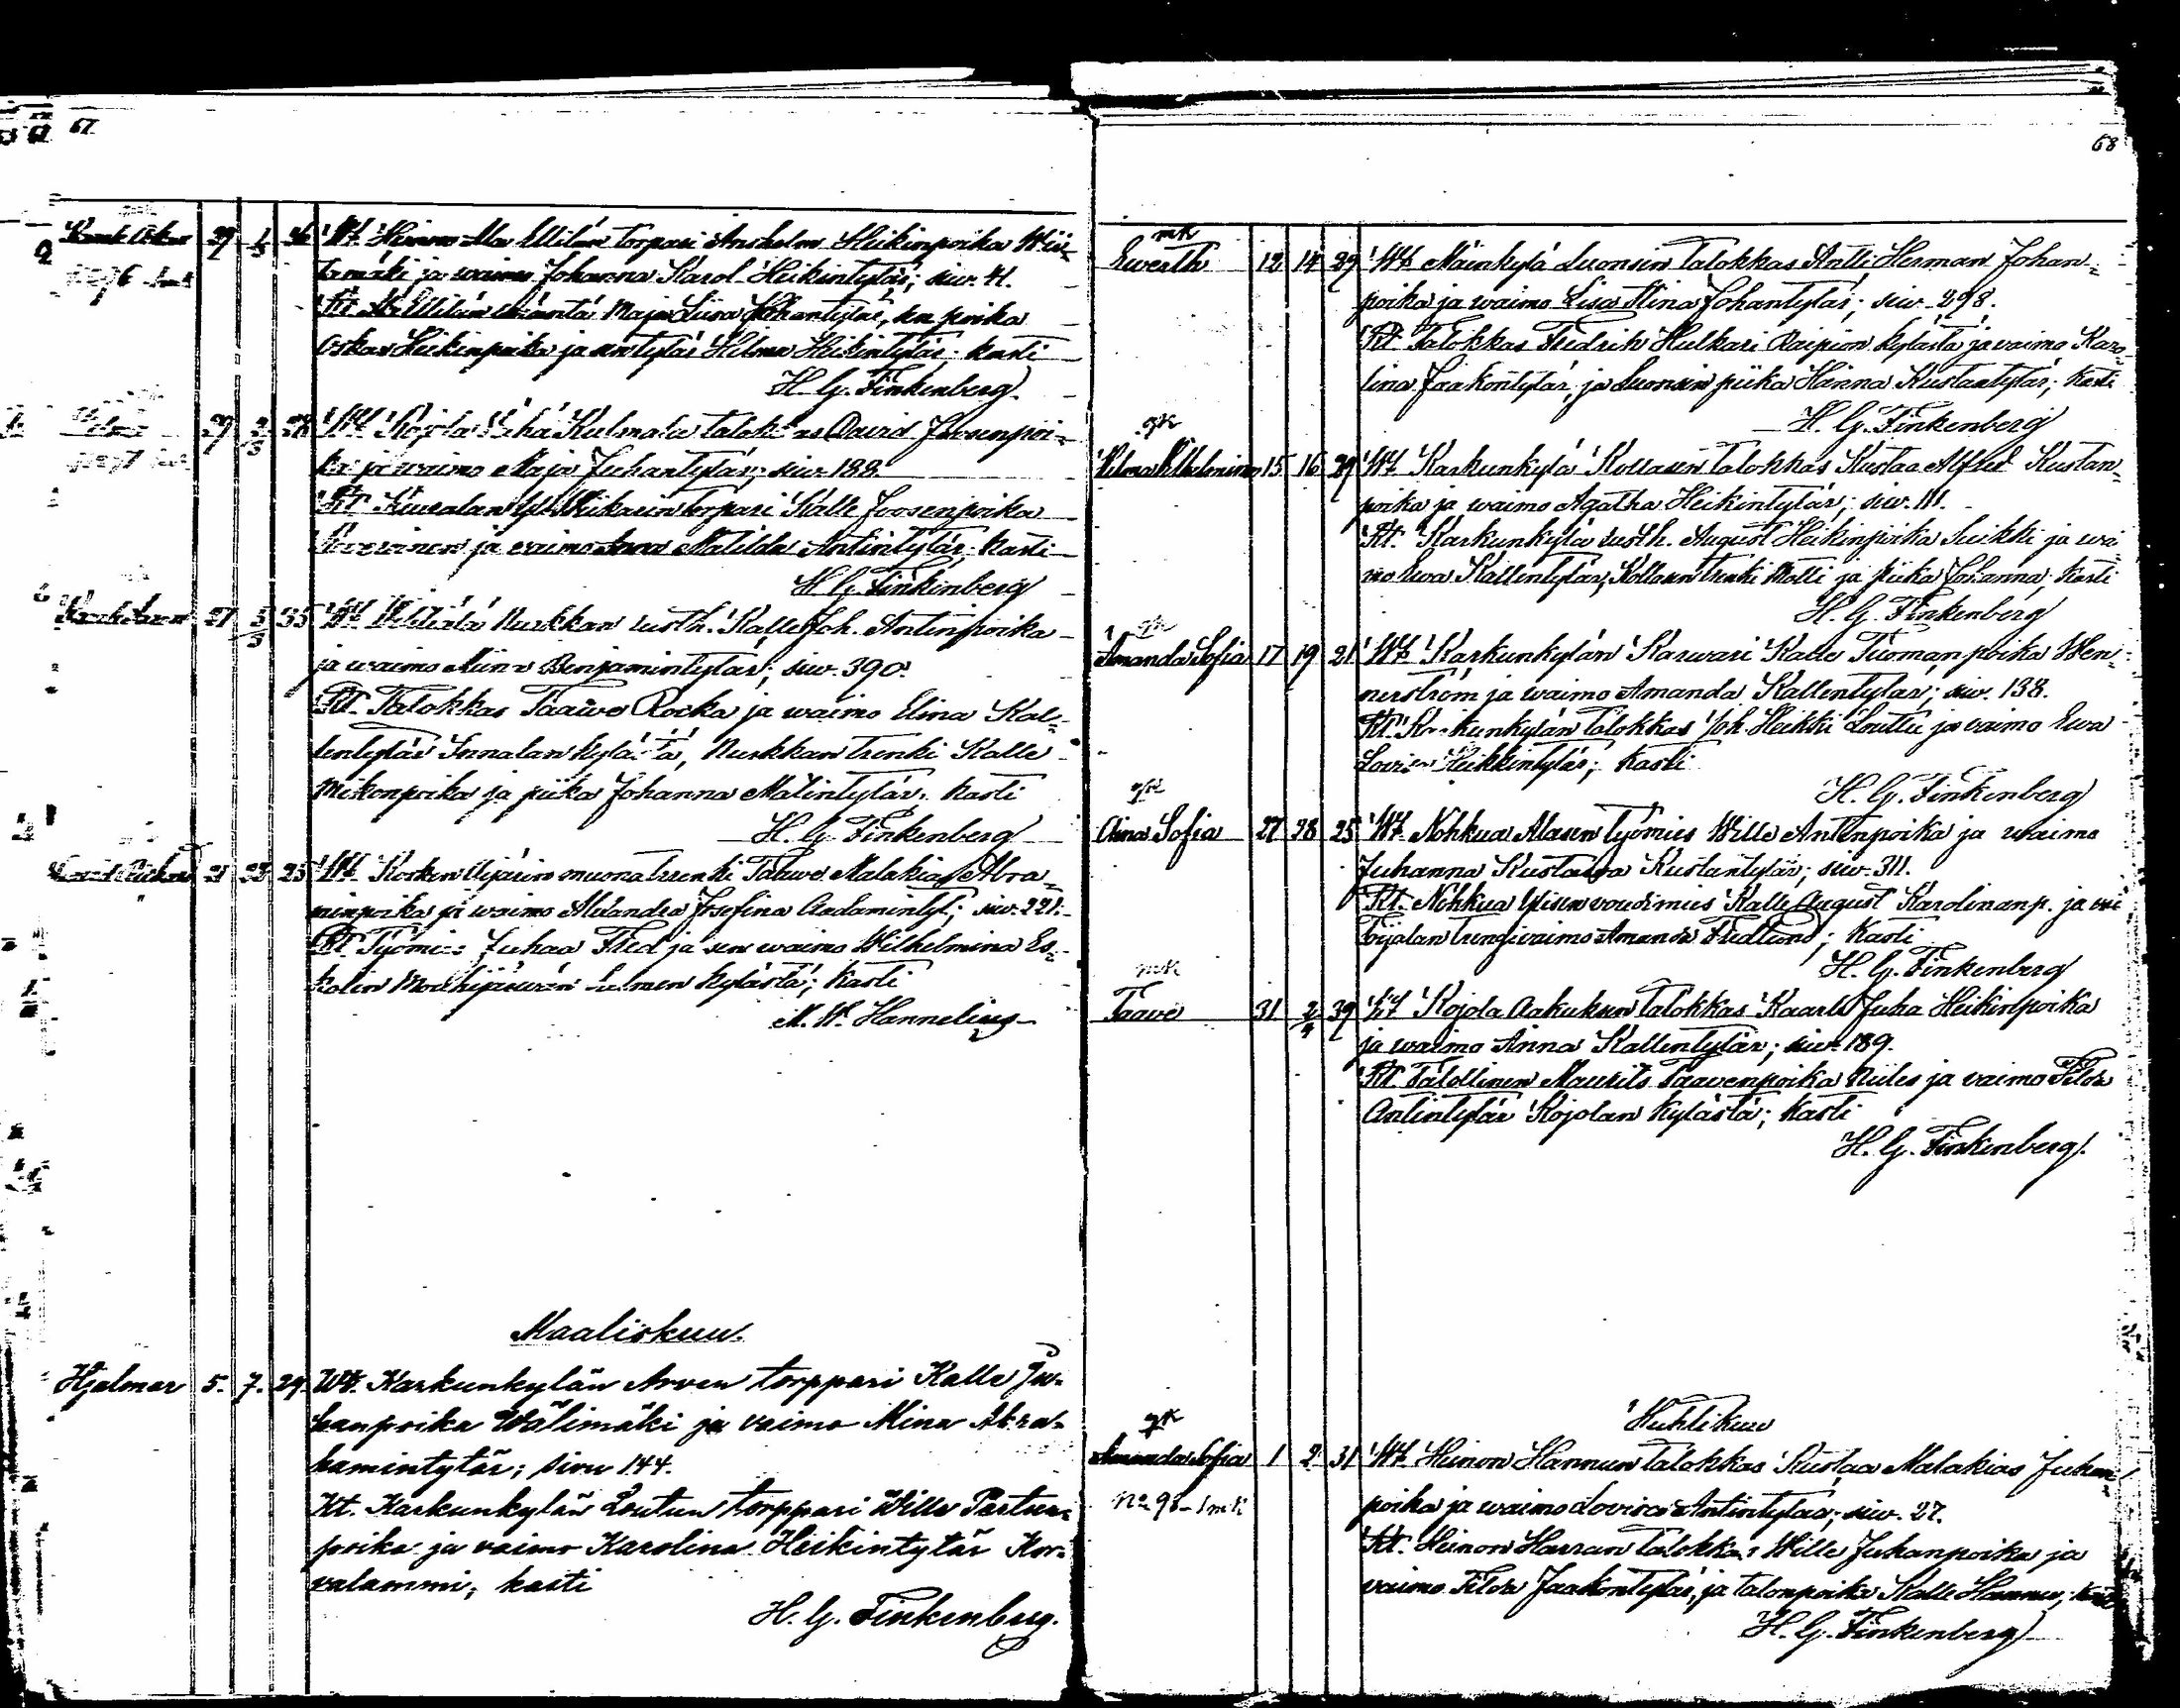 67
Kaarle Oskar 29 1/3 36 Wt. Heinon Ala Ellilän torpari Anshelm Heikinpoika Wii-
tamäki ja waimo Johanna Karol. Heikintytär; siw. 41.
Kt. Ellilän Maja Liisa Johantytär, sen poika
Oskar Heikinpoika ja sen tytär Hilma Heikintytär; kasti
H. G. Finkenberg.
27 Wt. Kojola Kulmala talokkas David Joosenpoi-
ka ja waimo Maja Juhantytär; siw. 188.
Kt. torpari Kalle Joosenpoika
ja waimo Matilda Antintytär; kasti
H. G. Finkenberg
27 5/3 35 Wt. Nurkkan rusth. Kalle Joh. Antinpoika
ja waimo Miina Benjamintytär; siw. 390.
Kt. Talokkas Taawe Rocka ja waimo Elina Kal-
lentytär Innalan kylästä, Nurkkan trenki Kalle
Mikonpoika ja piika Johanna Matintytär; kasti
H. G. Finkenberg
21 23 25 Wt. Korken Äijärin muonatrenki Taawe Malakias Abra-
minpoika ja waimo Alexandra Josefina Aadamintyt.; siw. 221.
Kt. Työmies Juhaa Fred ja sen waimo Wilhelmina Es-
kolin Mouhijärwän Salmen kylästä; kasti
M. W. Hannelius
Maaliskuu.
Hjalmar 5. 7. 29. Wt. Karkunkylän Arven torppari Kalle Ju-
hanpoika Wälimäki ja vaimo Mina Abra-
hamintytär; sivu 144.
Kt. Karkunkylän Loutun torppari Wille Perttun-
poika ja vaimo Karolina Heikintytär Kor-
valammi; kasti
H. G. Finkenberg.
68
mk
Ewerth 12 14 29 Wt. Mäinkylä Luonsin talokkas Antti Herman Johan-
poika ja waimo Lisa Stina Johantytär; siw. 298.
Kt. Talokkas Fredrik Hulkari Raipion kylästä ja vaimo Karo-
lina Jaakontytär, ja Luonsin piika Hanna Kustaantytär; kasti
H. G. Finkenberg
qk
Hilma Wilhelmina 15 16 29 Wt. Karkunkylä Kollasen talokkas Kustaa Alfred Kustan-
poika ja waimo Agatha Heikintytär; siw. 111.
Kt. Karkunkylä rusth. August Heikinpoika Seikki ja wai
mo Ewa Kallentytär, Kollasen trenki Matti ja piika Johanna; kasti
H. G. Finkenberg
qk
Amanda Sofia 17 19 21 Wt. Karkunkylän Karwari Kalle Tuomanpoika Wen-
nerström ja waimo Amanda Kallentytär; siw. 138.
Kt. Karkunkylän talokkas Joh. Heikki Louttu ja vaimo Ewa
Lovisa Heikkintytär; kasti
H. G. Finkenberg
qk
Aina Sofia 27 28 25 Wt. Nohkua Alasen työmies Wille Antinpoika ja waimo
Juhanna Kustaava Kustantytär; siw. 311.
Kt. Nohkua Ylisen voudimies Kalle August Karolinanp. ja wai
Toijalan trengivaimo Amanda Fredlund; kasti
H. G. Finkenberg
mk
Taave 31 2/4 39 Wt. Kojola Aakukun talokkas Kaarle Juha Heikinpoika
ja waimo Anna Kallentytär; siw. 189.
Kt. Talollinen Maurits Taavenpoika Niiles ja vaimo Filda
Antintytär Kojolan kylästä; kasti
H. G. Finkenberg.
Huhtikuu
qk
Amanda Sofia 1 2 31 Wt. Heinon Hannun talokkas Kustaa Malakias Juhan-
No 98
poika ja waimo Lovisa Antintytär; siw. 27.
Kt. Heinon Harran talokkas Wille Juhanpoika ja
vaimo Filda Jaakontytär, ja talonpoika Kalle Hannu; kasti
H. G. Finkenberg